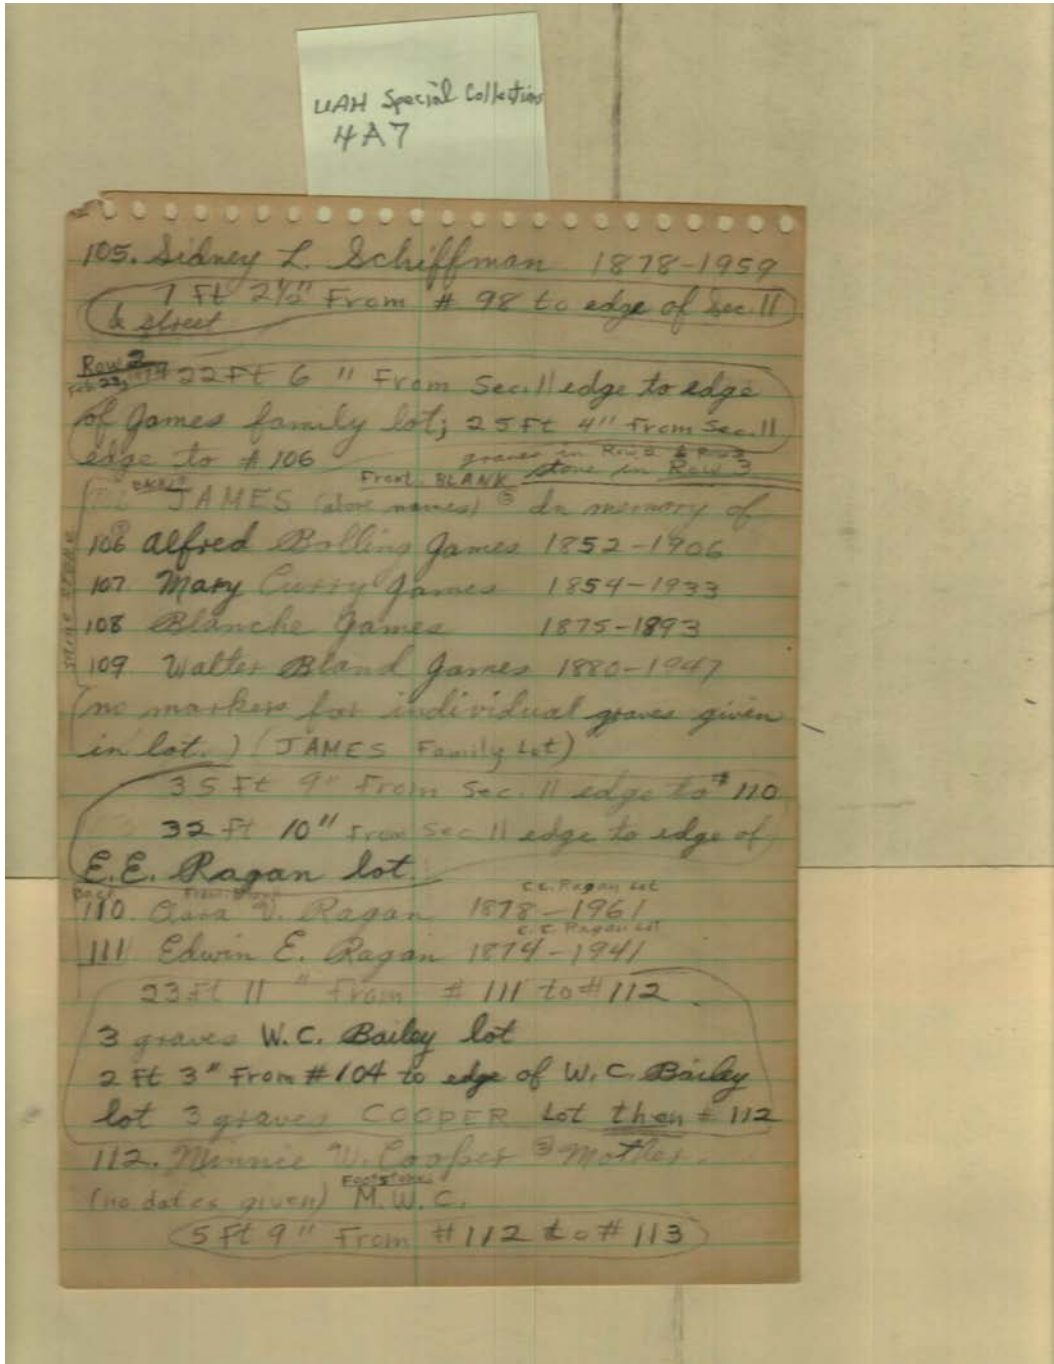 UAH Special Collections
4A7
105. Sidney L. Schiffman 1878-1959
7 Ft 2½" From # 98 to edge of Sec. 11
& street
Row 2
Feb. 23, 1979 22 Ft 6 " From Sec. 11 edge to edge
of James family lot; 25 Ft 4" From Sec. 11
edge to # 106
graves in Row 2 &
stone in Row 3
Front. BLANK
JAMES (above names) In memory of
106 Alfred Bolling James 1852-1906
107 Mary Curry James 1854-1933
108 Blanche James 1875-1893
109 Walter Bland James 1880-1947
same stone
(no markers for individual graves given
in lot.) (JAMES Family Lot)
35 Ft 9" From Sec. 11 edge to # 110
32 Ft 10" From Sec 11 edge to edge of
E.E. Ragan lot.
Back Front. Blank E.E. Ragan Lot
110. Clara V. Ragan 1878-1961
E.E. Ragan Lot
111 Edwin E. Ragan 1874-1941
23 Ft 11 " From # 111 to # 112
3 graves W.C. Bailey lot
2 Ft 3" From # 104 to edge of W.C. Bailey
lot 3 graves COOPER Lot then # 112
112. Minnie W. Cooper Mother.
Footstone:
(no dates given) M.W.C.
5 Ft 9" From # 112 to # 113